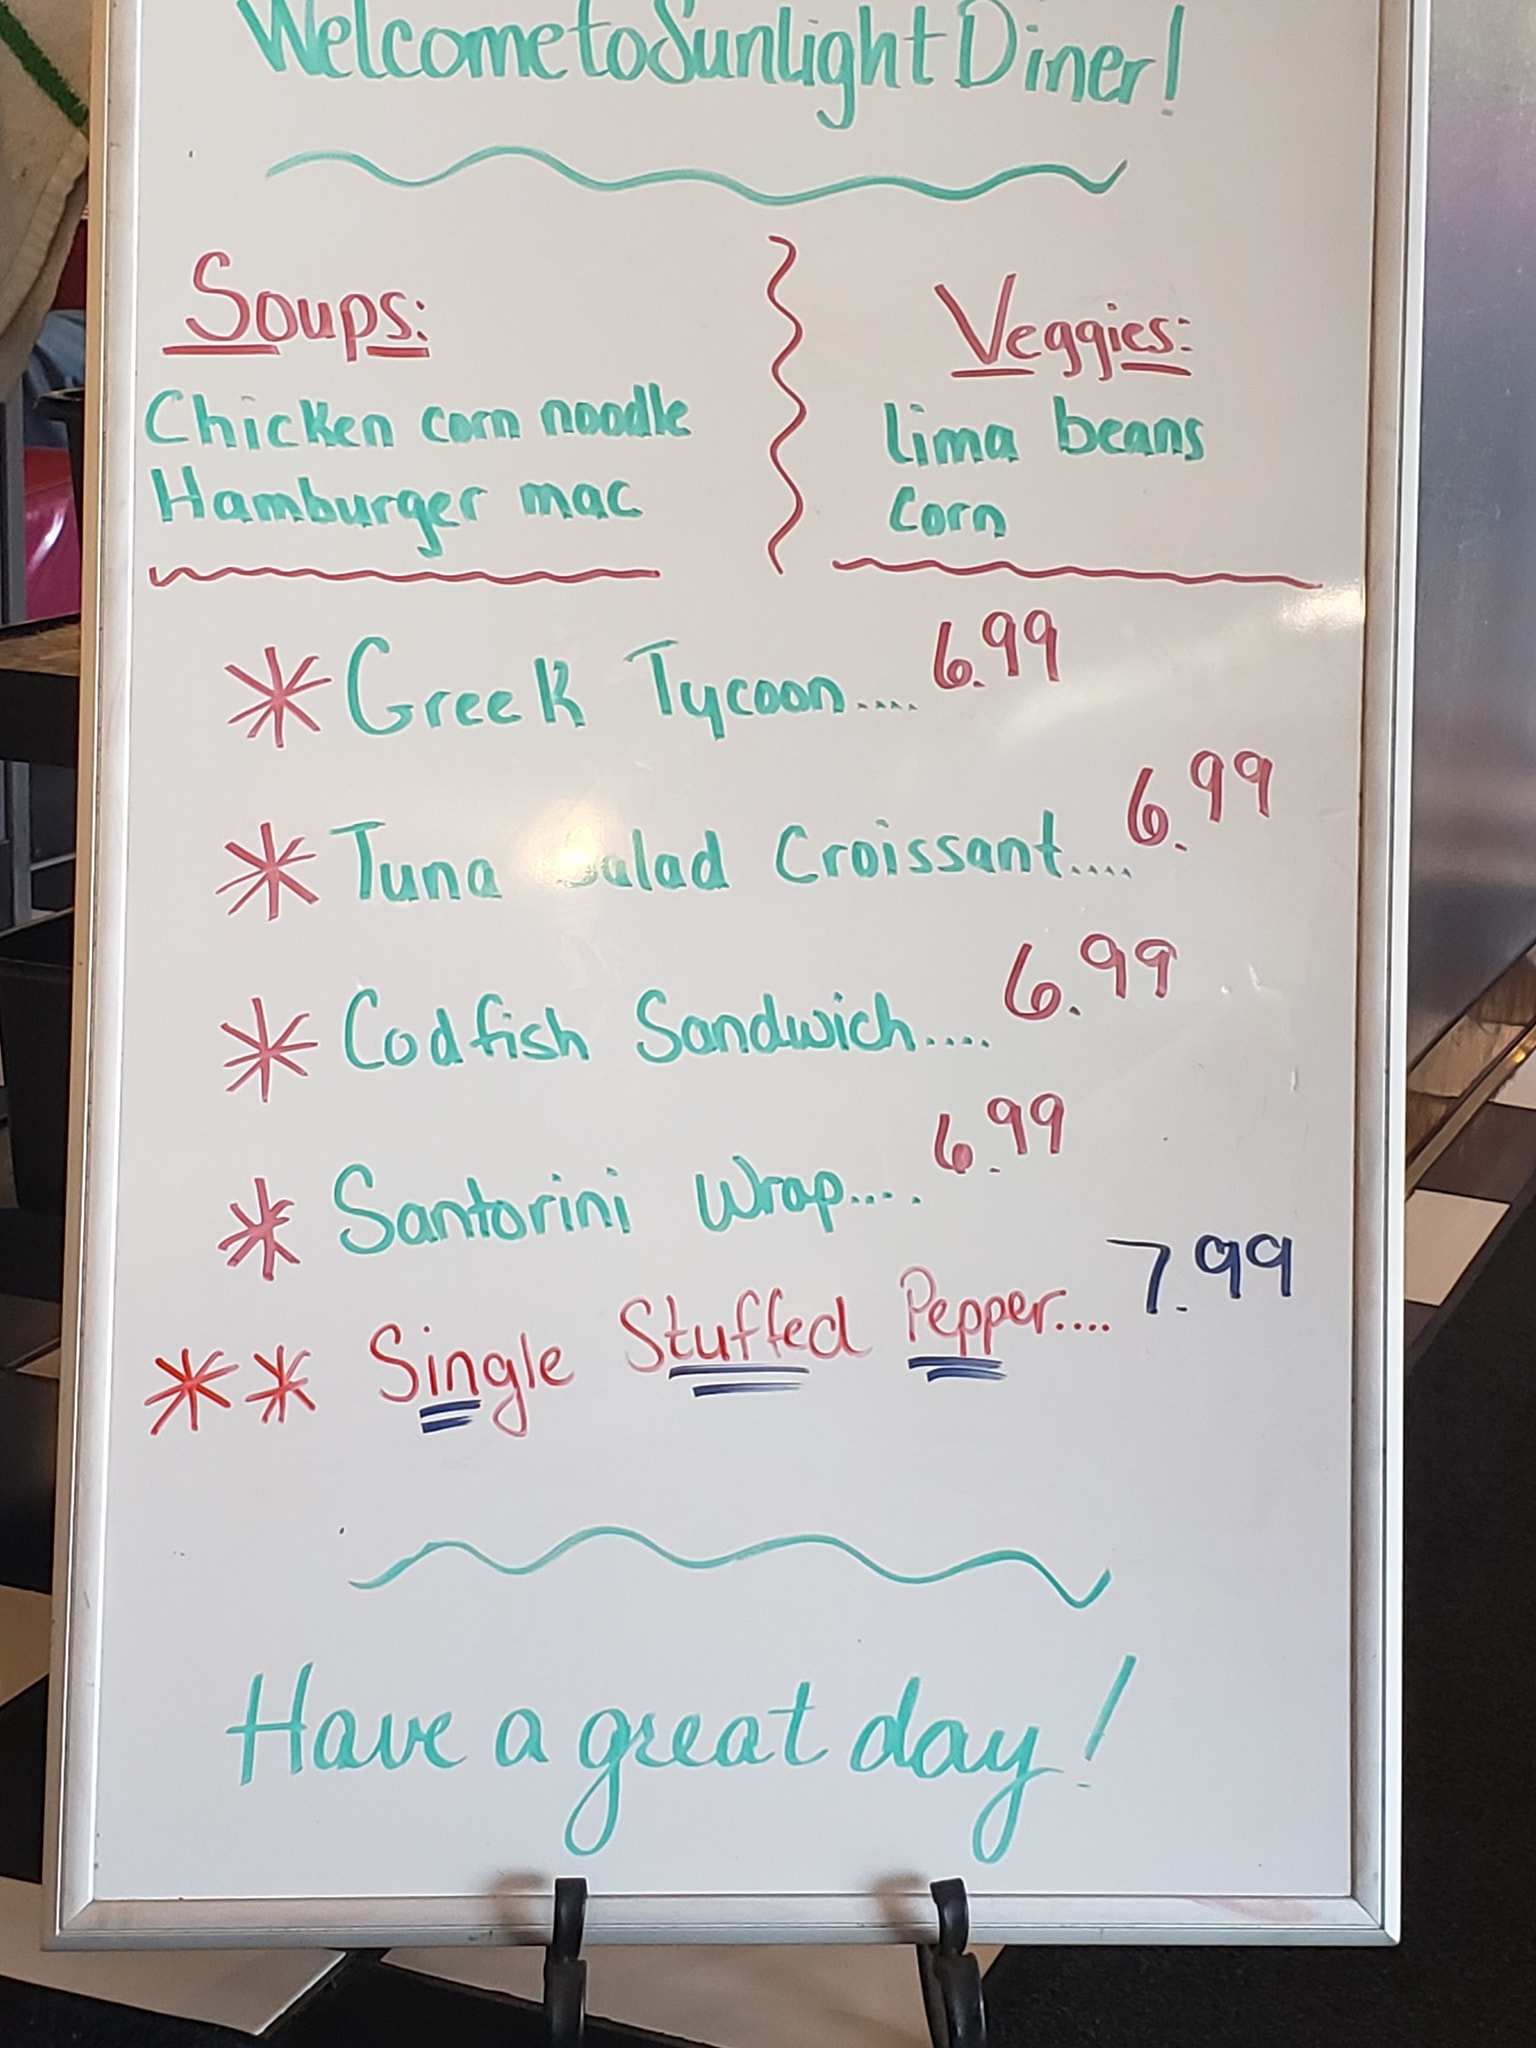 Welcome to Sunlight Diner!
Soups:
Chicken corn noodle
Hamburger mac
Veggies:
lima beans
Corn
* Greek Tycoon.... 6.99
* Tuna Salad Croissant.... 6.99
* Codfish Sandwich.... 6.99
* Santorini Wrap.... 6.99
** Single Stuffed Pepper.... 7.99
Have a great day!